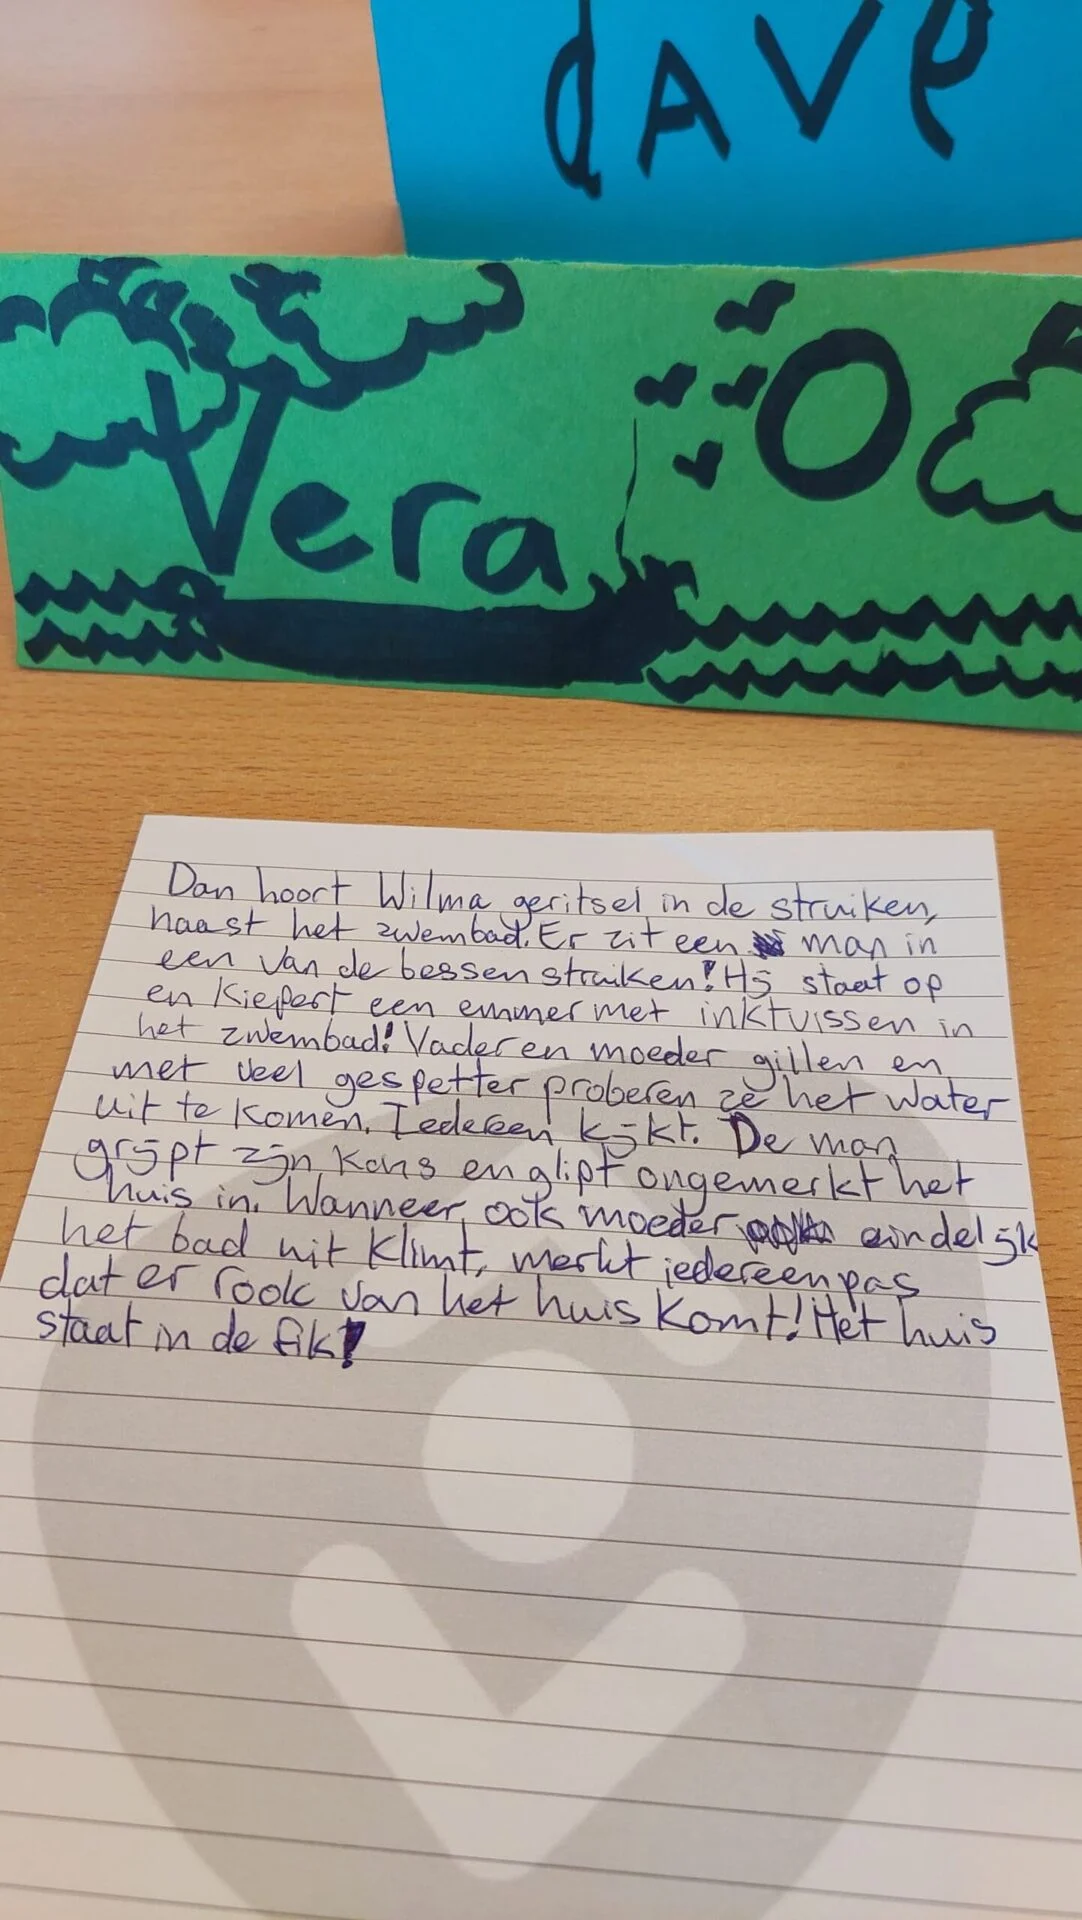 dAVe
Vera O
Dan hoort Wilma geritsel in de struiken,
naast het zwembad. Er zit een man in
een van de bessenstruiken! Hij staat op
en kiepert een emmer met inktvissen in
het zwembad! Vader en moeder gillen en
met veel gespetter proberen ze het water
uit te komen. Iedereen kijkt. De man
grijpt zijn kans en glipt ongemerkt het
huis in. Wanneer ook moeder eindelijk
het bad uit klimt, merkt iedereen pas
dat er rook van het huis komt! Het huis
staat in de fik!